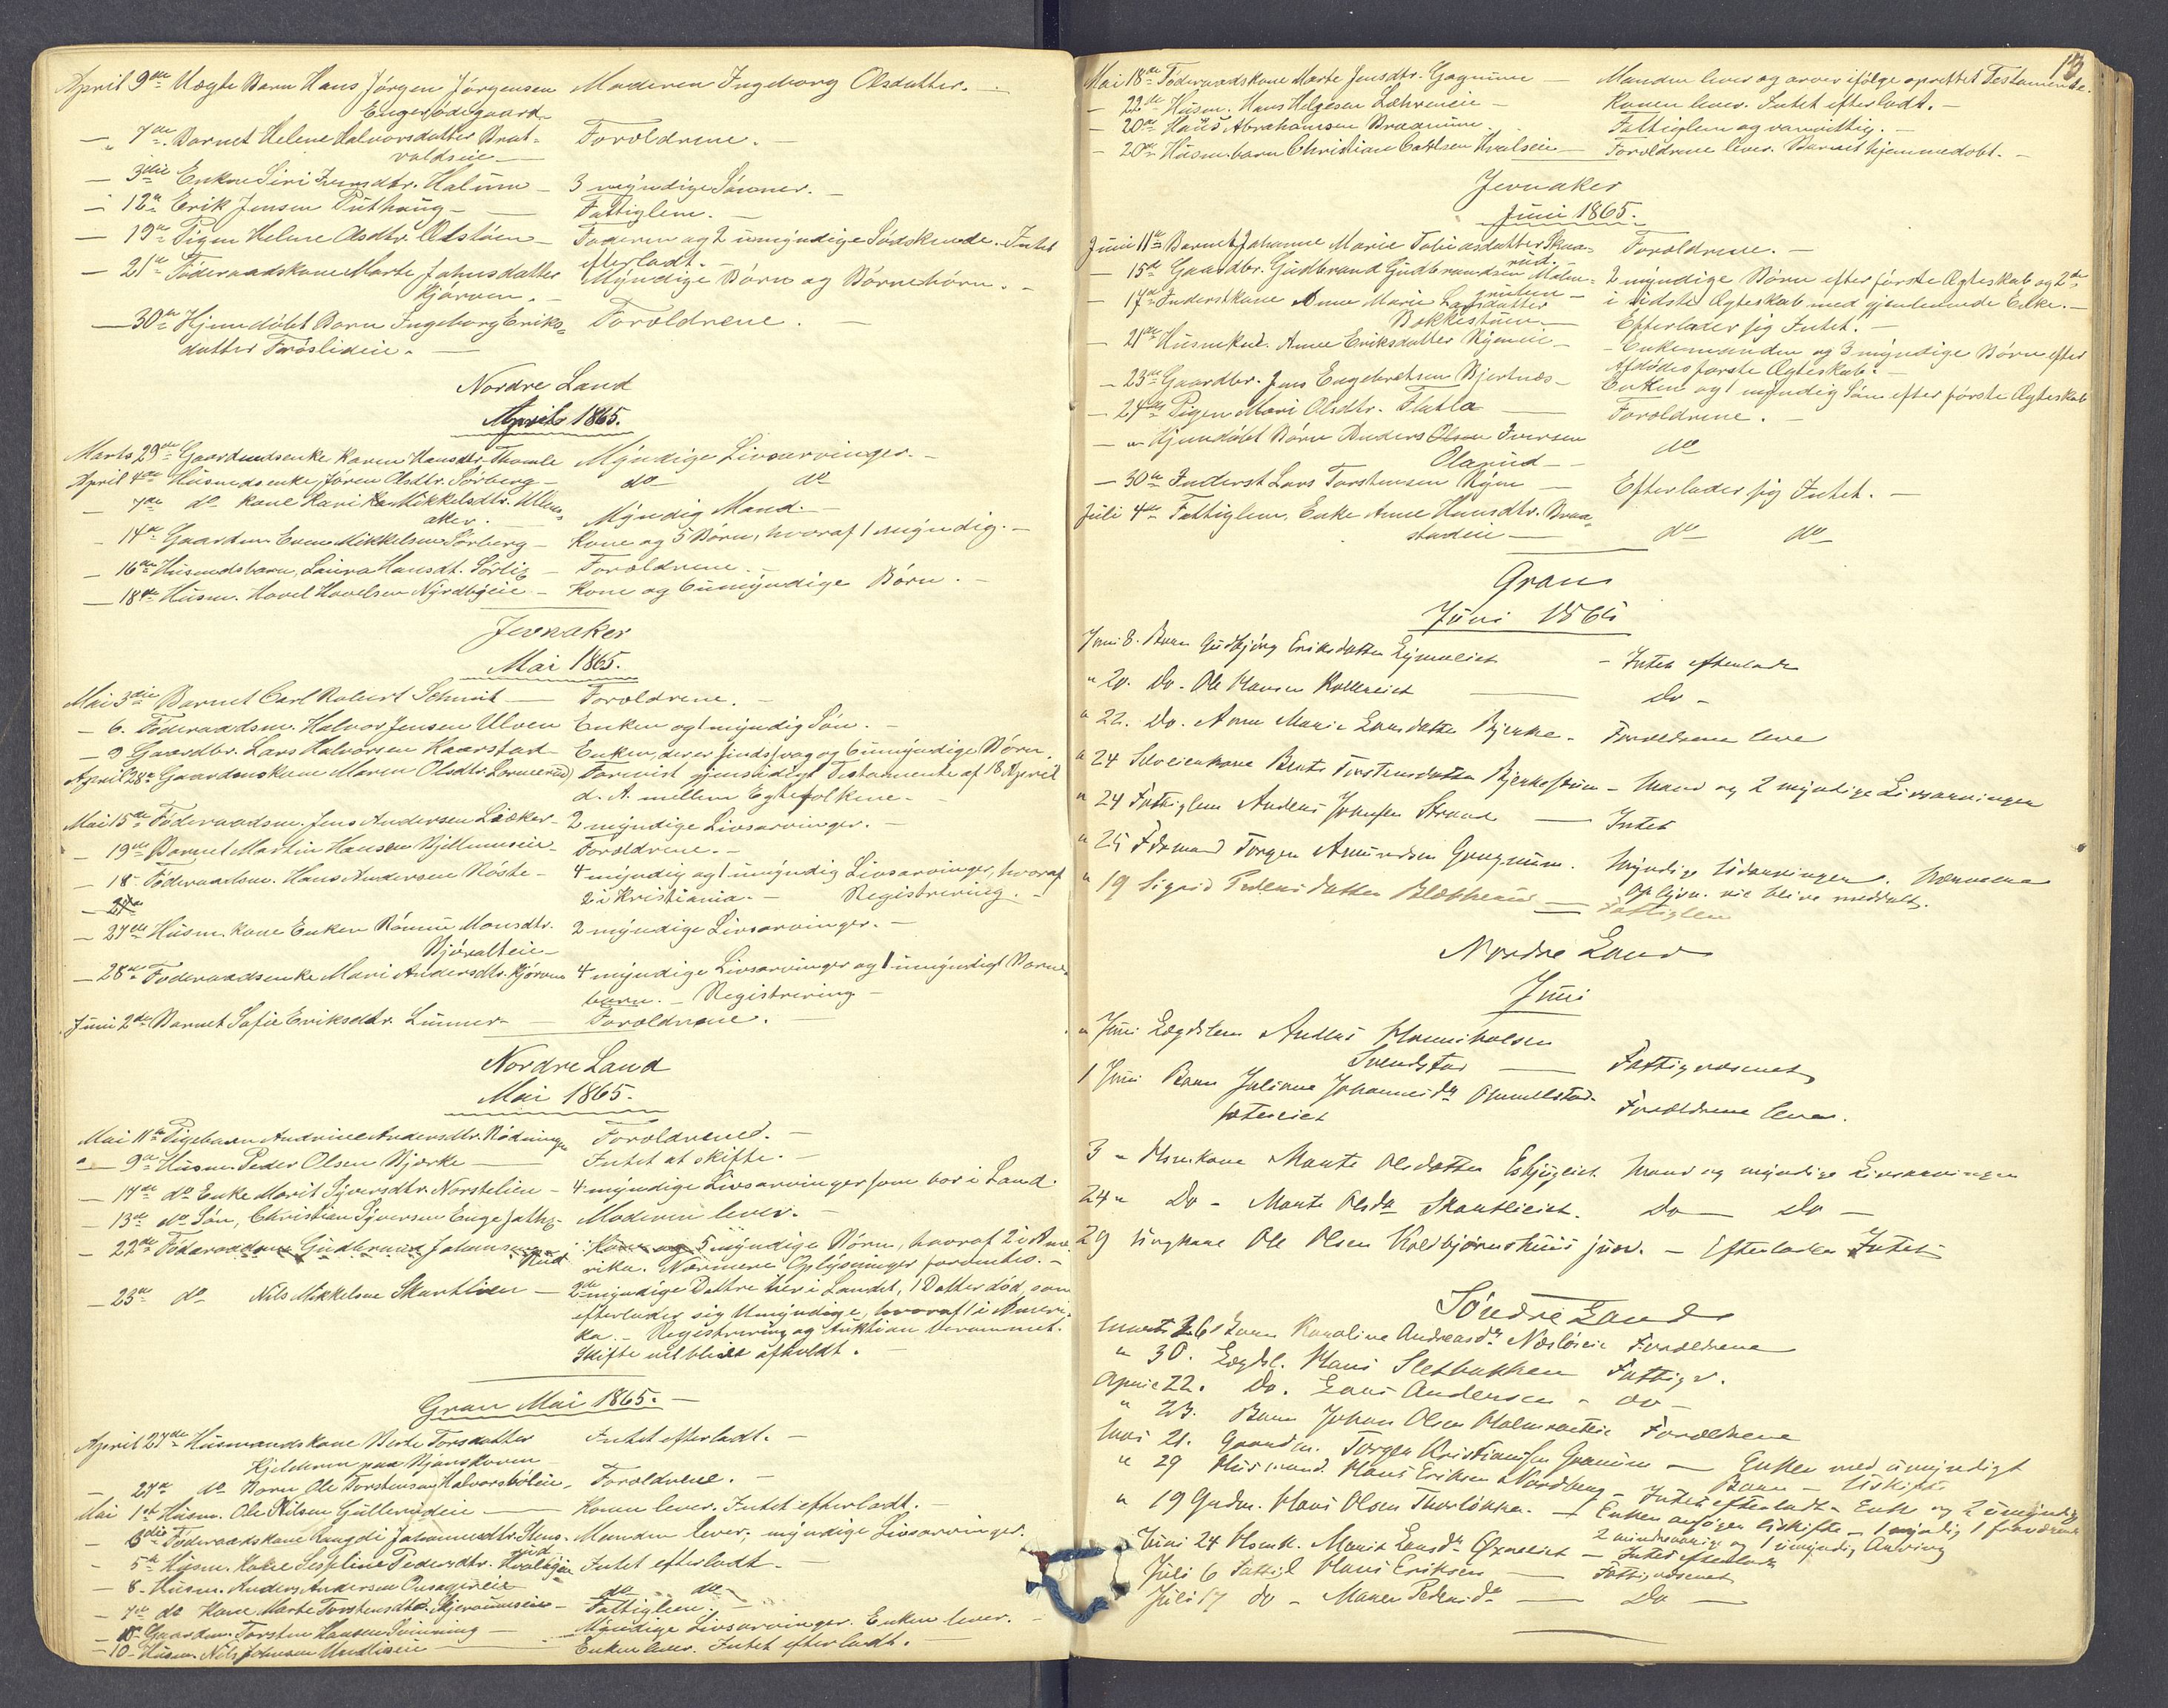 April 9de Uægte Barn Hans Jörgen Jörgensen Moderen Ingeborg Olsdatter. -
Enger ödegaard
- 7de Barnet Helene Halvorsdatter Brat- Forældrene. -
valdseie. -
- 3die Enken Siri Iversdtr. Halum - 3 myndige Sönner. -
- 12te Erik Jensen Puthaug - Fattiglem. -
- 19de Pigen Helene Olsdtr. - Faderen og 2 umyndige Södskende. Intet
efterladt. -
- 21de Föderaadskone Marte Johnsdatter Myndige Börn og Börnebörn. -
Kjörven. -
- 30te Hjemdöbt Barn Ingeborg Eriks- Forældrene. -
datter Fröslideie. -
Nordre Land
April 1865.
Marts 29de Gaardmdsenke Karen Hansdtr. Thomle Myndige Livsarvinger. -
April 4de Husmdsenke Jören Olsdtr. Sörberg - do do
- 7de do Kone Kari Mikkelsdtr. Ullens-
aker. - Myndig Mand. -
- 14de Gaardm. Even Mikkelsen Sörberg - Kone og 5 Börn, hvoraf 1 myndig. -
- 16de Husmdsbarn, Laura Hansdt. Sörlie - Forældrene. -
- 18de Husm. Hovel Hovelsen Nyrdbyeie - Kone og 6 umyndige Börn. -
Jevnaker
Mai 1865.
Mai 3die Barnet Carl Robert Schmit - Forældrene. -
- 6. Föderaadsm. Halvor Jensen Ulven Enken og 1 myndig Sön. -
- 9 Gaardbr. Lars Halvorsen Kaarstad - Enken, der er sindssvag og 6 umyndige Börn.
April 28de Gaardmskone Maren Olsdtr. Lormerud) Formist gjensidigt Testamente af 18 April
d. A. mellem Egtefolkene. -
Mai 15de Föderaadsm. Jens Andersen Löeker - 2 myndige Livsarvinger. -
- 19de Barnet Martin Hansen Bjellumseie Forældrene. -
- 18 Föderaadsm. Hans Andersen Röste - 4 myndig og 1 umyndig Livsarvinger, hvoraf
2 i Kristiania. - Registrering. -
- 27de Husm. kone Enken Rönnu Monsdtr. 2 myndige Livsarvinger. -
Björalteie -
- 28de Föderaadsenke Mari Andersdtr. Kjörven 4 myndige Livsarvinger og 1 umyndigt Barne-
barn. - Registrering -
Juni 2den Barnet Sofie Eriksdtr. Lunner - Forældrene. -
Nordre Land
Mai 1865.
Mai 11te Pigebarn Andrine Andersdtr. Rödningen Forældrene. -
- 9de Husm. Peder Olsen Bjørke - Intet at skifte. -
- 14de do Enke Marit Syversdtr. Norstelien - 4 myndige Livsarvinger som bor i Land.
- 13de do Sön, Christian Syversen Enge Moderen lever. -
- 22de Föderaadsm. Gudbrand Johannesen Kone og 5 myndige Börn, hvoraf 2 i Ame-
Rud rika. Nærmere Oplysninger forventes. -
- 23de do Nils Mikkelsen Skartlien - 2de myndige Dattre her i Landet, 1 Datter död, som
efterlader sig Umyndige, hvoraf 1 i Ameri-
ka. - Registrering og Auktion berammet.
Skifte vil blive afholdt. -
Gran Mai 1865. -
April 27de Husmandskone Berte Torsdatter Intet efterladt. -
Kjelderen paa Bjønskoven
- 27de do Barn Ole Torstensen Halvorsböleie, Forældrene. -
Mai 1ste Husm. Ole Nilsen Gulleneie - Konen lever. Intet efterladt. -
- 6te Föderaadskone Rangdi Johannesdtr. Mens- Manden lever; myndige Livsarvinger.
rud
- 5te Husm. Kone Sesseline Pedersdtr. Intet efterladt -
- 8. Husm. Anders Andersen do do
- 7de do Kone Marte Torstensdtr. Bjeraunseie - Fattiglem. -
- 10 Gaardm. Torsten Hansen Svinning - Myndige Livsarvinger. Enken lever. -
- 10 - Husm. Nils Johnsen - Enken lever. Intet efterladt. -
13
Mai 18de Föderaadskone Marte Jensdtr. Gagnum - Manden lever og arver ifölge oprettet Testamente.
- 22de Husm. Hans Helgesen Læhreneie - Konen lever. Intet efterladt. -
- 20de Hans Abrahamsen Braarum Fattiglem og vanvittig. -
- 20de Husm. barn Christian Carlsen Hvalseie - Forældrene lever. Barnet hjemmedöbt. -
Jevnaker
Juni 1865.
Juni 11te Barnet Johanne Marie Tobiasdatter Skaa- Forældrene. -
rud.
- 15de Gaardbr. Gudbrand Gudbrandsen Molen- 2 myndige Börn efter förste Ægteskab og 2de
- 17de Inderstkone Anne Marie Larsdatter i sidste Ægteskab med gjenlevende Enke. -
Bakkestuen - Efterlader sig Intet. -
- 21de Husmkone. Anne Eriksdatter Ryeneie - - Enkemanden og 3 myndige Börn efter
Afdödes förste Ægteskab. -
- 23de Gaardbr. Jens Engebretsen Bjertnæs - Enken og 1 myndig Sön efter förste Ægteskab
- 27de Pigen Mari Olsdtr. Flatla - Forældrene. -
- " Hjemdöbt Barn Anders Olsen Iversen do
Olarud -
- 30te Inderst Lars Torstensen Ryen - Efterlader sig Intet. -
Juli 4de Fattiglem. Enke Anne Hansdtr. Braa-
stadeie - do do
Gran
Juni 1865
Juni 8. Barn Gudbjörg Eriksdatter - Intet efterladt
" 20. Do. Ole Hansen - Do -
" 22. Do. Anne Marie Larsdatter Bjerke - Forældrene leve
" 24 Selveierkone Berte Torstensdatter - Mand og 2 myndige Livsarvinger
" 24 Fattiglem Anders Johnsen Strand - Intet
" 25 Fdrmand Torgen Amundsen Gagnum. Myndige Udarvinger. Nærmere
Oplysn. vil blive meddelt.
" 19 Sigrid Pedersdatter - Fattiglem
Nordre Land
Juni
" Juni Lægdslem Anders
Svendstad - Fattigvæsenet
1 Juni Barn Juliane Johannesdr - Forældrene leve.
sæterseiet
3 " Hsmkone Marte Olsdatter Mand og myndige Livsarvinger
24 " Do - Marte Olsdr Skartlieiet. Do - Do -
29 Ungkarl Ole Olsen Koldbjörnshuus - Efterlader Intet
Söndre Land
Marts 26 Barn Karoline Andreasdr Næslöseie Forældrene
" 30. Lægdsl. Hans Sletbakken Fattigv.
April 22. Do. Lars Andersen - do -
" 23. Barn Johan Olsen Forældrene
Mai 21. Gaardm. Torger Kristiansen Granum - Enken med umyndigt
Barn - Uskifte
" 29 Husmand. Hans Eriksen Nordberg - Intet efterladt - Enke og 2 umyndige
" 19 Grdm. Hans Olsen - Enken ansöger Uskifte - 1 myndig 1
2 mindreaarige og 1 umyndig Arving
Juni 24 Hsmk. Marie Larsdr - Intet efterladt
Juli 6 Fattigl Hans Eriksen - Fattigvæsenet
Juli 17 do - Maren Pedersdr - Do -